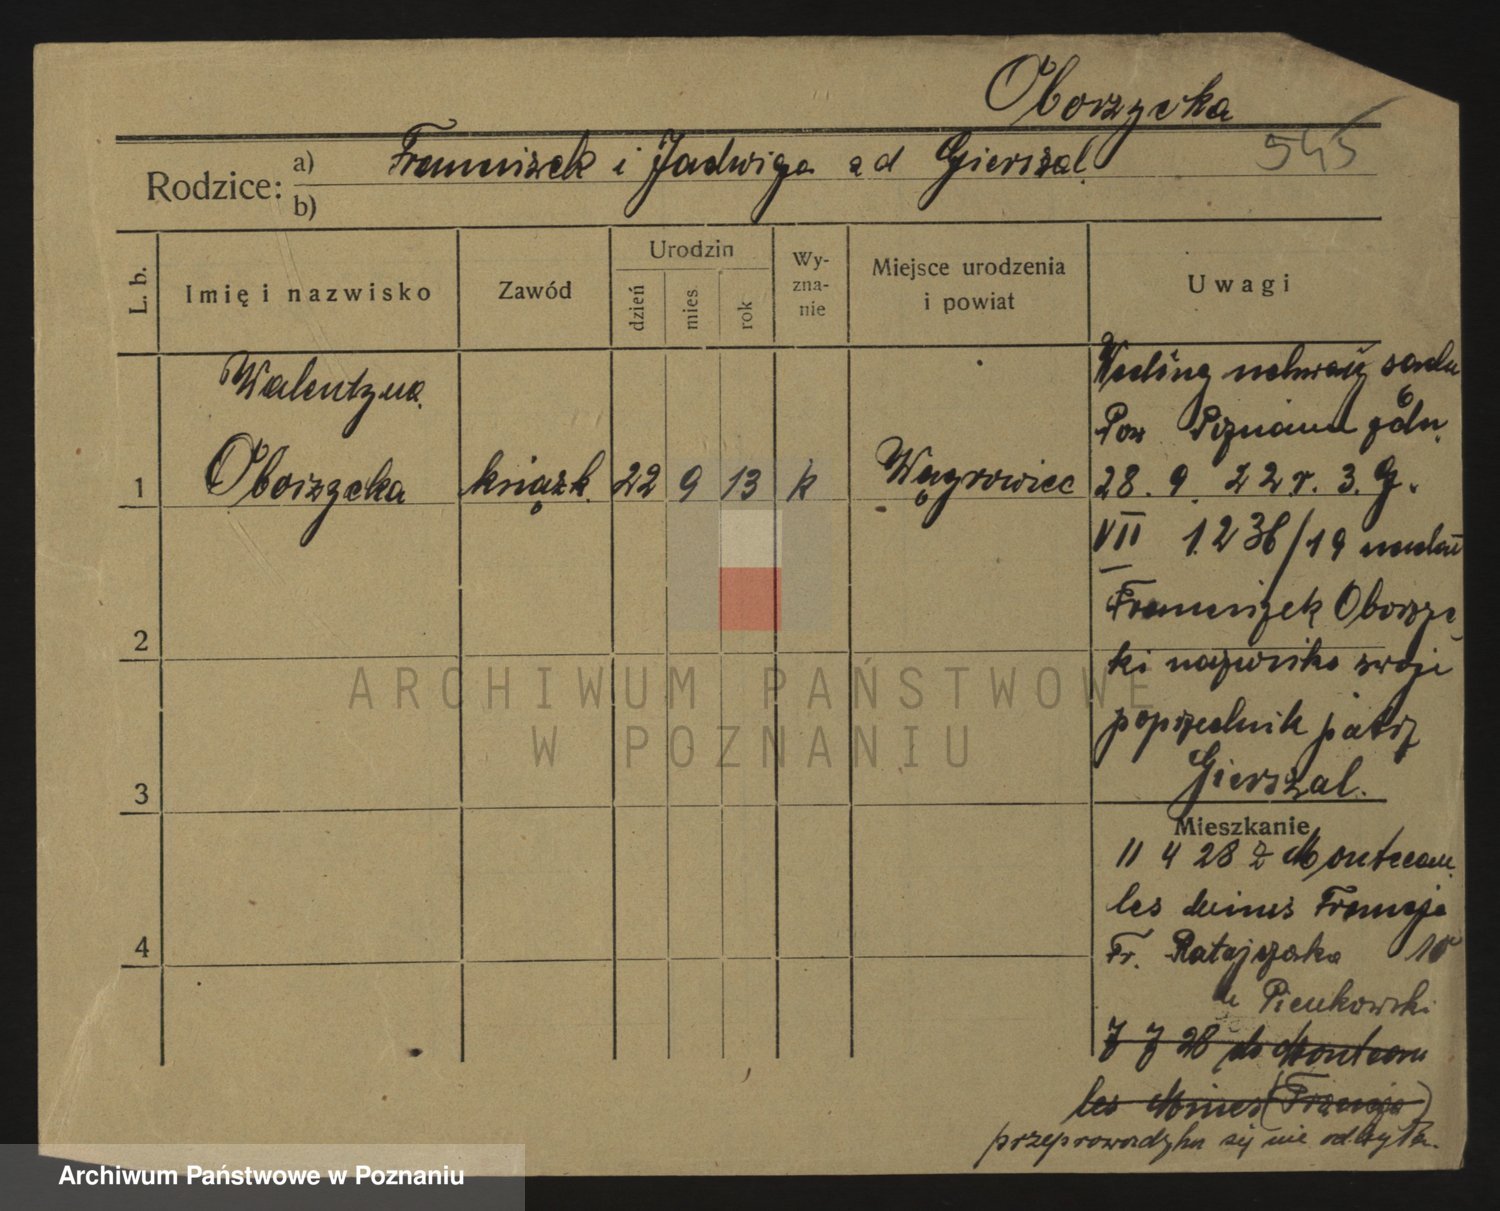 Oborzycka
545
Rodzice:
a) Franciszek i Jadwiga z d Gierszal
b)
L. b.
Imię i nazwisko
Zawód
Urodzin
dzień
mies
rok
Wy-
zna-
nie
Miejsce urodzenia
i powiat
Uwagi
Walentyna
1 Oborzycka książk. 22 9 13 k Wągrowiec
2
3
4
Według uchwały sądu
Pow Poznania
28. 9. 22 r. 3. G.
VII 1236/19
Franciszek Oborzyc
ki nazwisko swoje
poprzednik patrz
Gierszal.
Mieszkanie
11 4 28 z Montceau
les mines Francja
Fr. Ratajczaka
u Pienkowski
7 7 28 do Montceau
les Mines (Francja)
przeprowadzka się nie odbyła.
ARCHIWUM PAŃSTWOWE
W POZNANIU
Archiwum Państwowe w Poznaniu